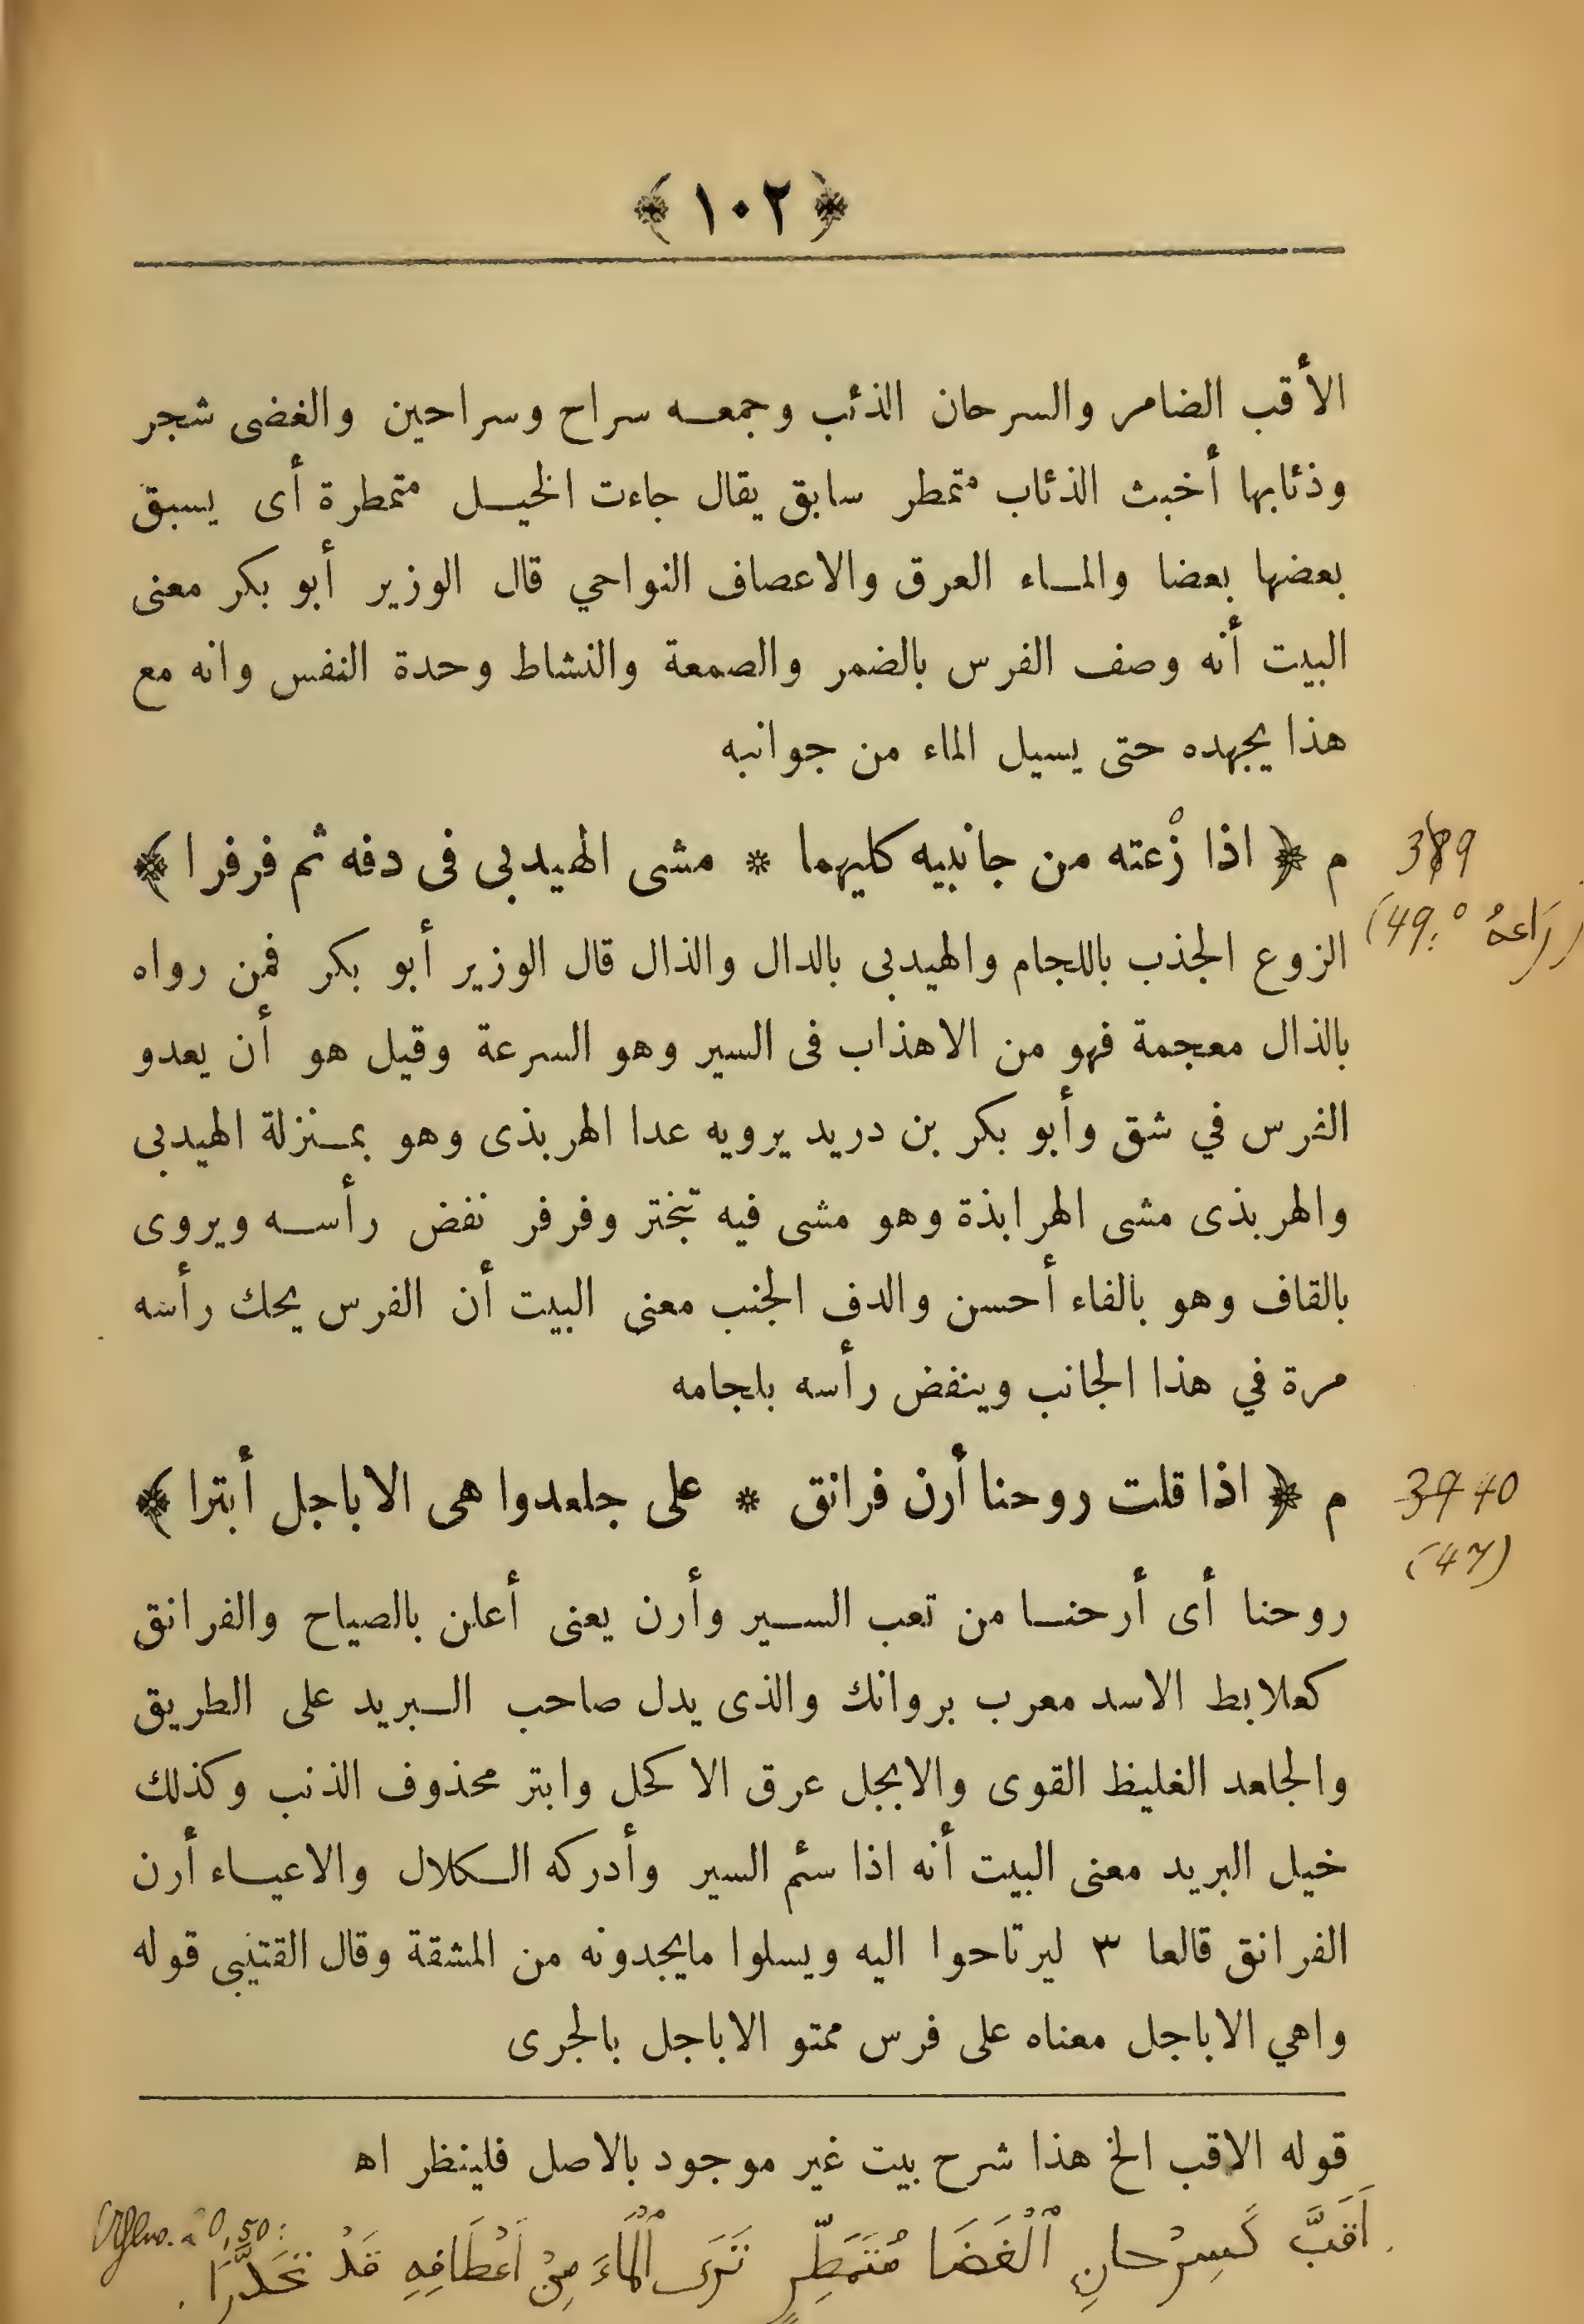 ﴿ ١٠٢ ﴾
الأقب الضامر والسرحان الذئب وجمعه سراح وسراحين والغضى شجر
وذئابها أخبث الذئاب متمطر سابق يقال جاءت الخيل متمطرة أى يسبق
بعضها بعضا والماء العرق والاعصاف النواحي قال الوزير أبو بكر معنى
البيت أنه وصف الفرس بالضمر والصمعة والنشاط وحدة النفس وانه مع
هذا يجهده حتى يسيل الماء من جوانبه
م ﴿ اذا زُعته من جانبيه كليهما * مشى الهيدبى فى دفه ثم فرفرا ﴾
389
(49: زَاعهُ)
الزوع الجذب باللجام والهيدبى بالدال والذال قال الوزير أبو بكر فمن رواه
بالذال معجمة فهو من الاهذاب فى السير وهو السرعة وقيل هو أن يعدو
الفرس في شق وأبو بكر بن دريد يرويه عدا الهربذى وهو بمنزلة الهيدبى
والهربذى مشى الهرابذة وهو مشى فيه تبختر وفرفر نفض رأسه ويروى
بالقاف وهو بالفاء أحسن والدف الجنب معنى البيت أن الفرس يحك رأسه
مرة في هذا الجانب وينفض رأسه بلجامه
م ﴿ اذا قلت روحنا أرن فرانق * على جلعدوا هى الاباجل أبترا ﴾
39 40
(47)
روحنا أى أرحنا من تعب السير وأرن يعنى أعلن بالصياح والفرانق
كعلابط الاسد معرب بروانك والذى يدل صاحب البريد على الطريق
والجلعد الغليظ القوى والابجل عرق الاكحل وابتر محذوف الذنب وكذلك
خيل البريد معنى البيت أنه اذا سئم السير وأدركه الكلال والاعياء أرن
الفرانق قالعا ٣ ليرتاحوا اليه ويسلوا مايجدونه من المشقة وقال القتيبى قوله
واهي الاباجل معناه على فرس ممتو الاباجل بالجرى
قوله الاقب الخ هذا شرح بيت غير موجود بالاصل فلينظر اه
أَقَبَّ كَسِرْحانِ ٱلْغَضَا مُتَمَطِّرٍ تَرَى ٱلْمَاءَ مِنْ أَعْطَافِهِ قَدْ تَحَدَّرَا.